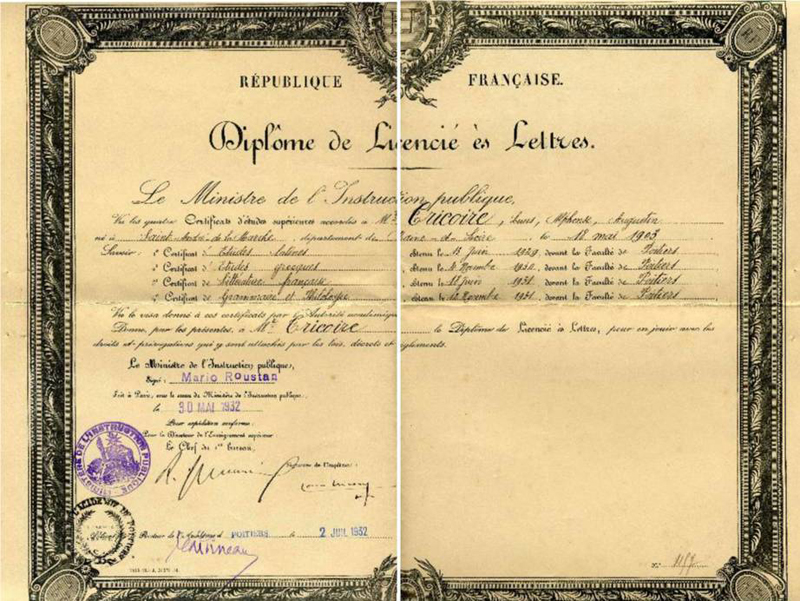 RÉPUBLIQUE FRANÇAISE.
Diplôme de Licencié ès Lettres.
Le Ministre de l'Instruction publique,
Vu les quatre Certificats d'études supérieures accordés à Mr Tricoire, Louis, Alphonse, Augustin
né à Saint André de la Marche, département de Maine-et-Loire le 18 mai 1903
Savoir:
1° Certificat d'Etudes latines obtenu le 13 Juin 1929 devant la Faculté de Poitiers
2° Certificat d'Etudes grecques obtenu le Novembre devant la Faculté de Poitiers
3° Certificat de Littérature française obtenu le Juin 1931 devant la Faculté de Poitiers
4° Certificat de Grammaire et Philologie obtenu le Novembre 1931 devant la Faculté de Poitiers
Vu le visa donné à ces certificats par l'Autorité académique
Donne, par les présentes, à Mr Tricoire le Diplôme de Licencié ès Lettres, pour en jouir avec les
droits et prérogatives qui y sont attachés par les lois, décrets et règlements.
Le Ministre de l'Instruction publique,
Signé: Mario Roustan
Fait à Paris, sous le sceau du Ministère de l'Instruction publique,
le 30 MAI 1932
Pour expédition conforme:
Pour le Directeur de l'Enseignement supérieur:
Le Chef du 1er bureau,
Signature de l'impétrant:
MINISTERE DE L'INSTRUCTION PUBLIQUE
ACADEMIE DE POITIERS
Recteur de l'Académie d POITIERS le 2 JUIL 1932
N°